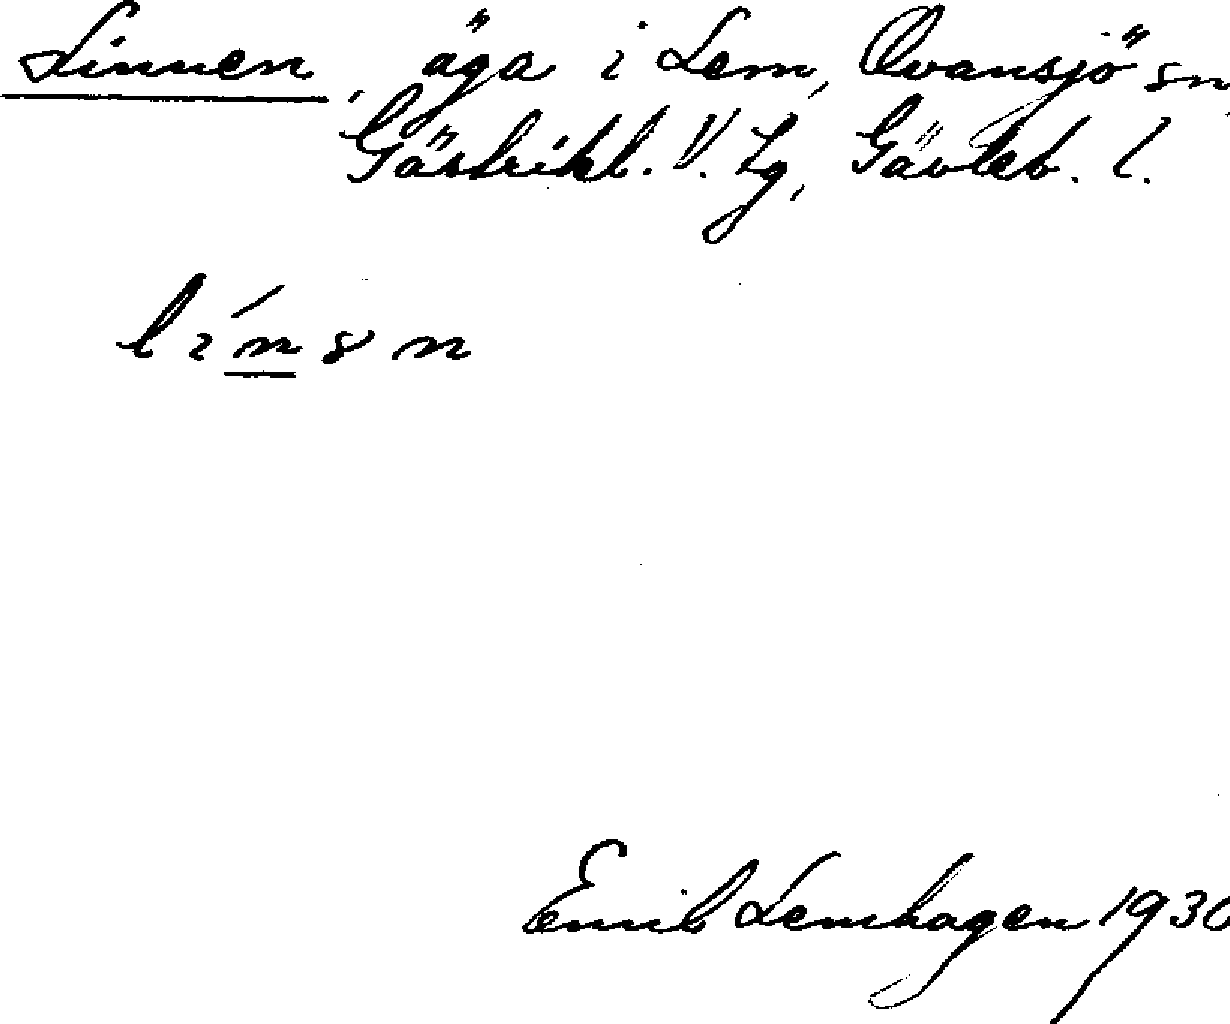 Linnen, äga i Lem, Ovansjö sn,
Gästrikl. V. tg, Gävleb. l.
línsn
Emil Lemhagen 1930